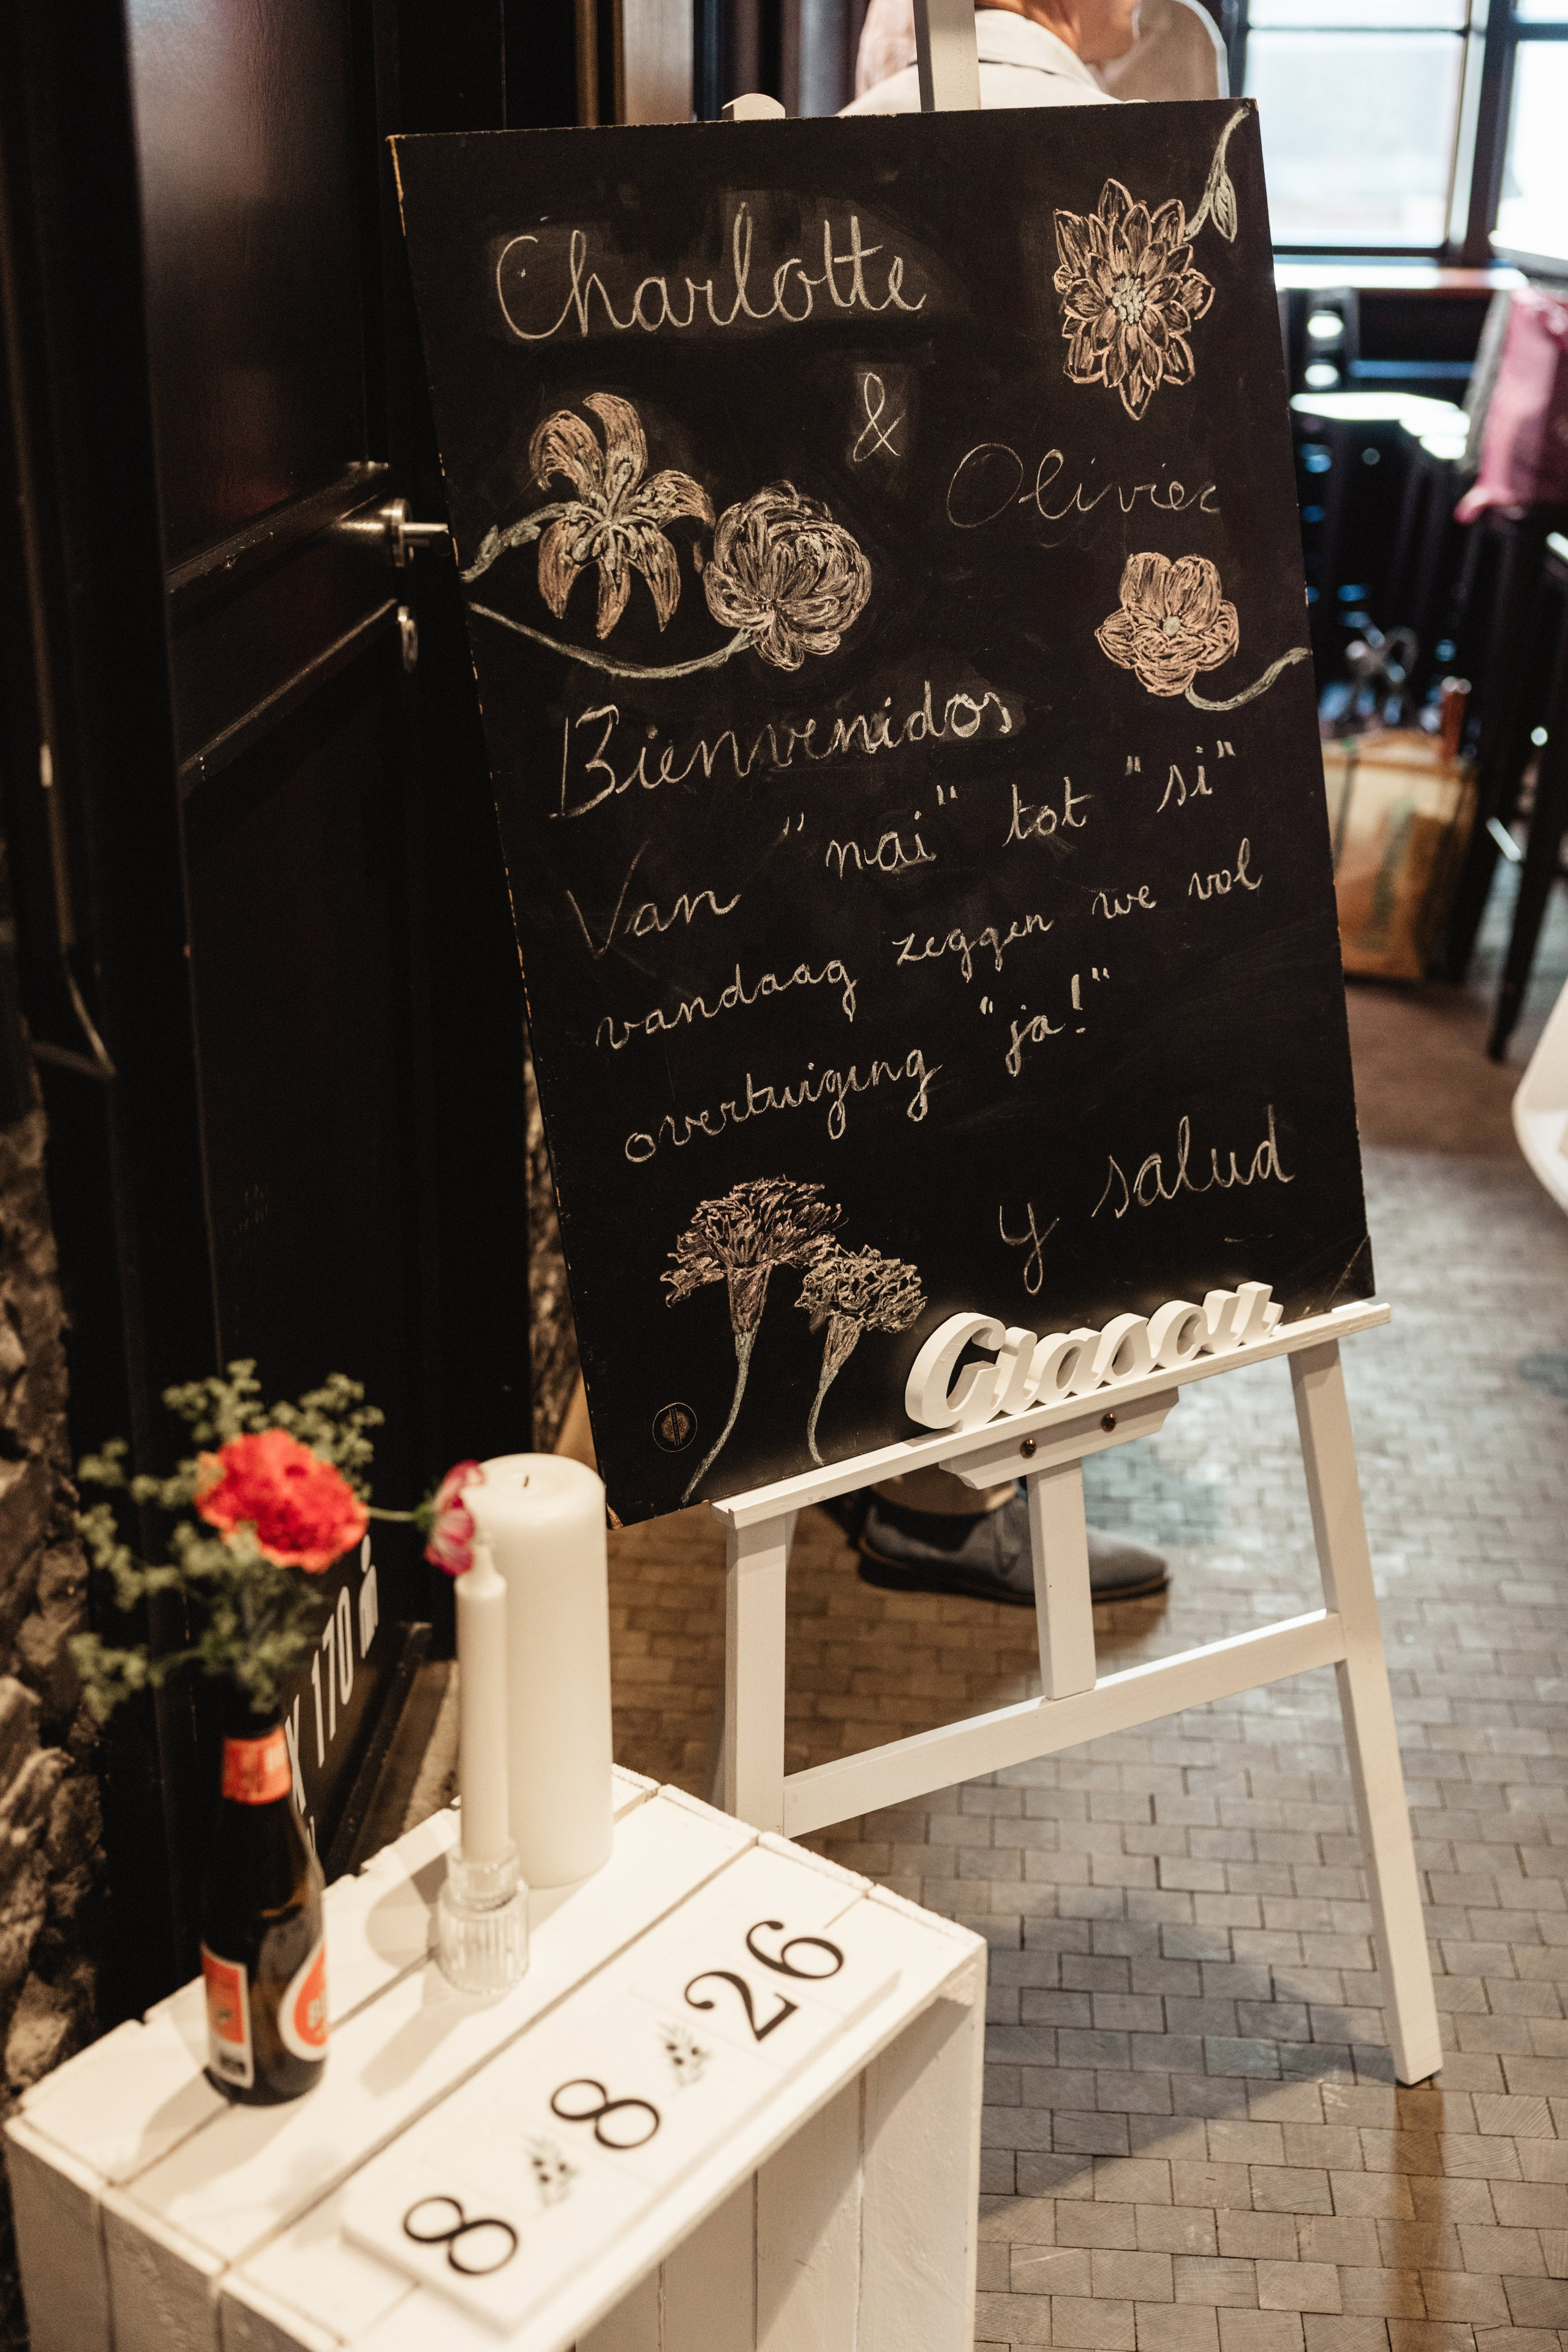 Charlotte
&
Olivier
Bienvenidos
Van "nai" tot "si"
vandaag zeggen we vol
overtuiging "ja!"
y salud
Giasou
170
8 8 26